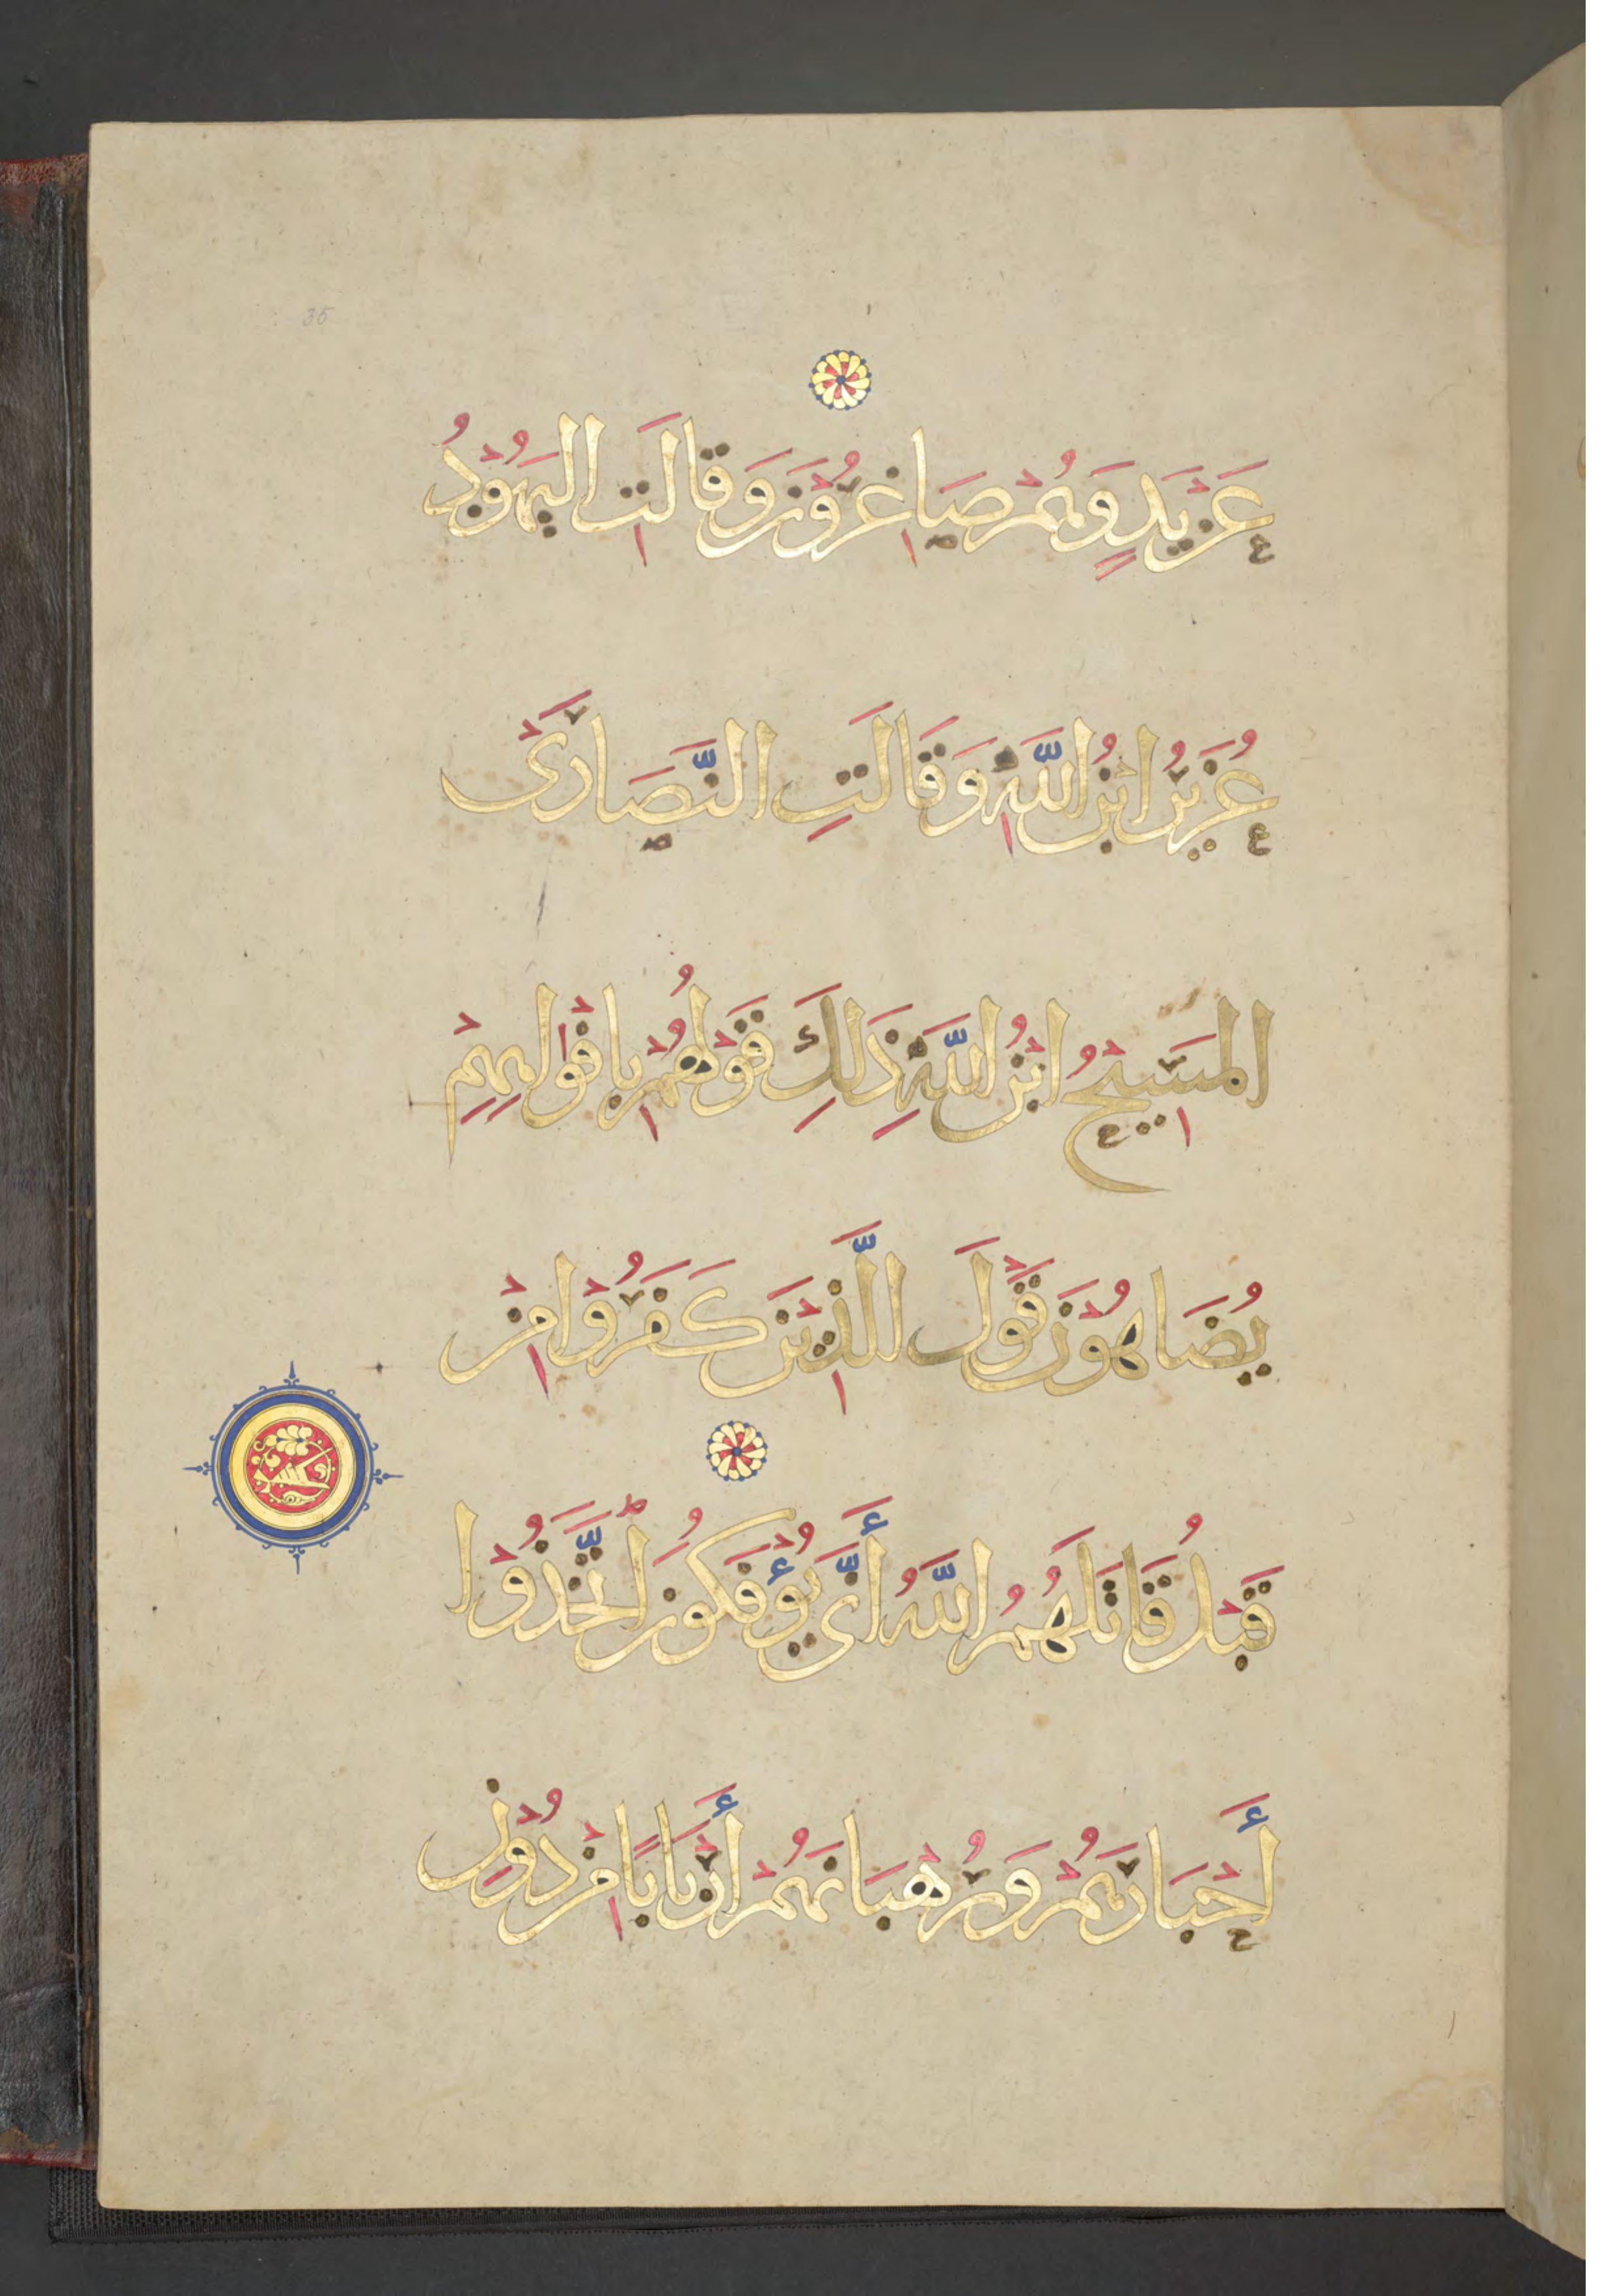 35
عَنْ يَدٍ وَهُمْ صَاغِرُونَ وَقَالَتِ الْيَهُودُ
عُزَيْرُ ابْنُ اللَّهِ وَقَالَتِ النَّصَارَىٰ
الْمَسِيحُ ابْنُ اللَّهِ ذَٰلِكَ قَوْلُهُمْ بِأَفْوَاهِهِمْ
يُضَاهُونَ قَوْلَ الَّذِينَ كَفَرُوا مِنْ
قَبْلُ قَاتَلَهُمُ اللَّهُ أَنَّىٰ يُؤْفَكُونَ اتَّخَذُوا
أَحْبَارَهُمْ وَرُهْبَانَهُمْ أَرْبَابًا مِنْ دُونِ